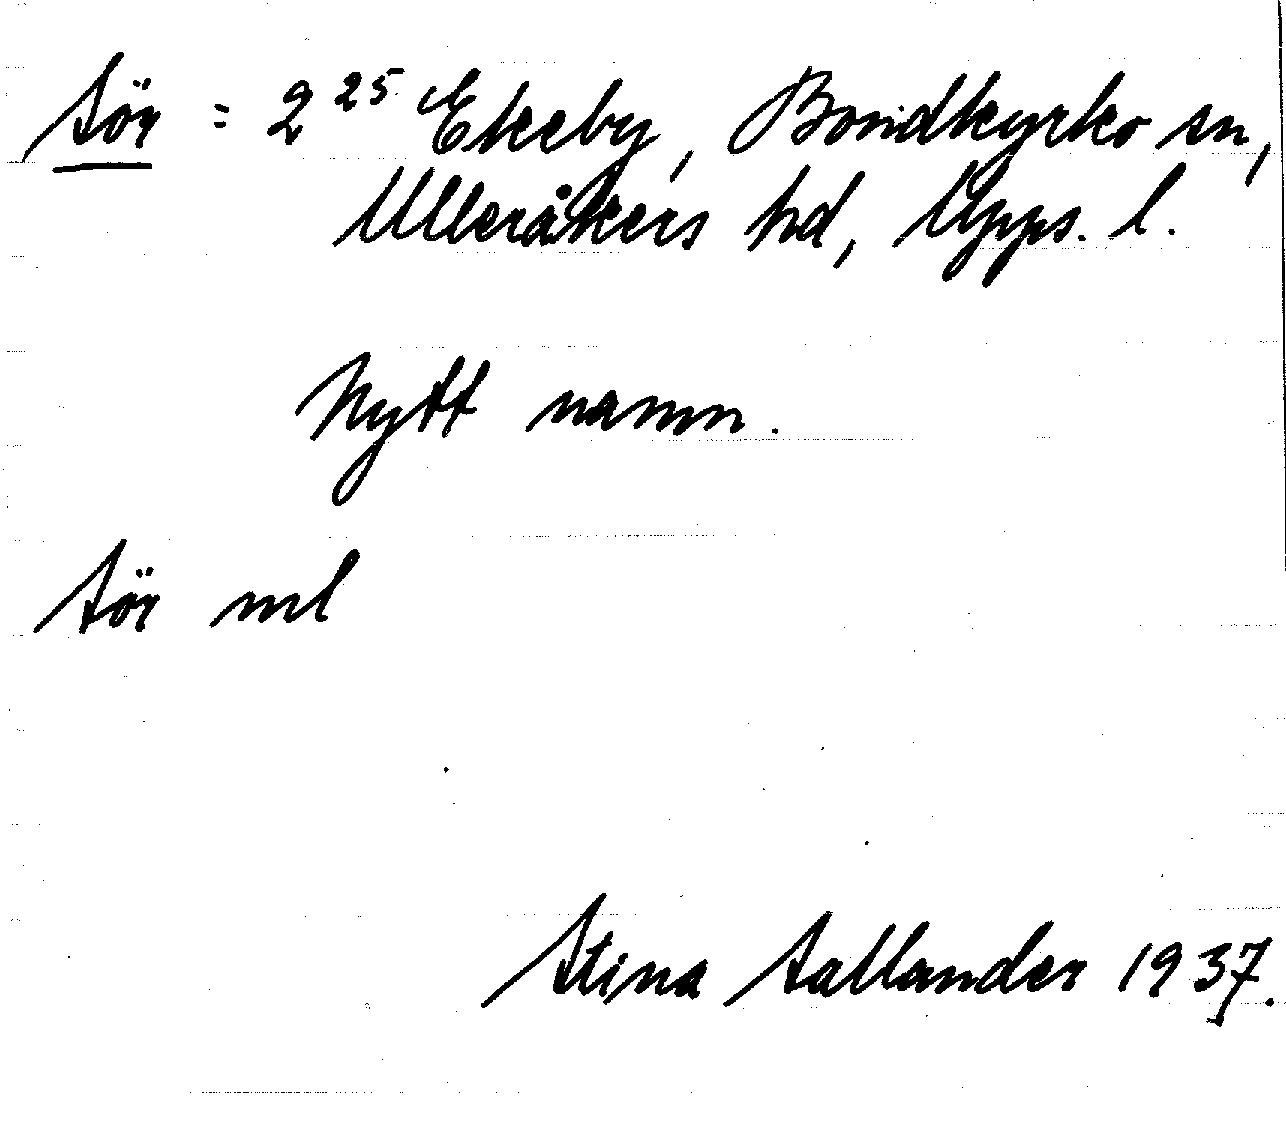 Sör = 2²⁵ Ekeby, Bondkyrko sn,
Ulleråkers hd, Upps. l.
Nytt namn.
Sör ml
Stina Sallander 1937.